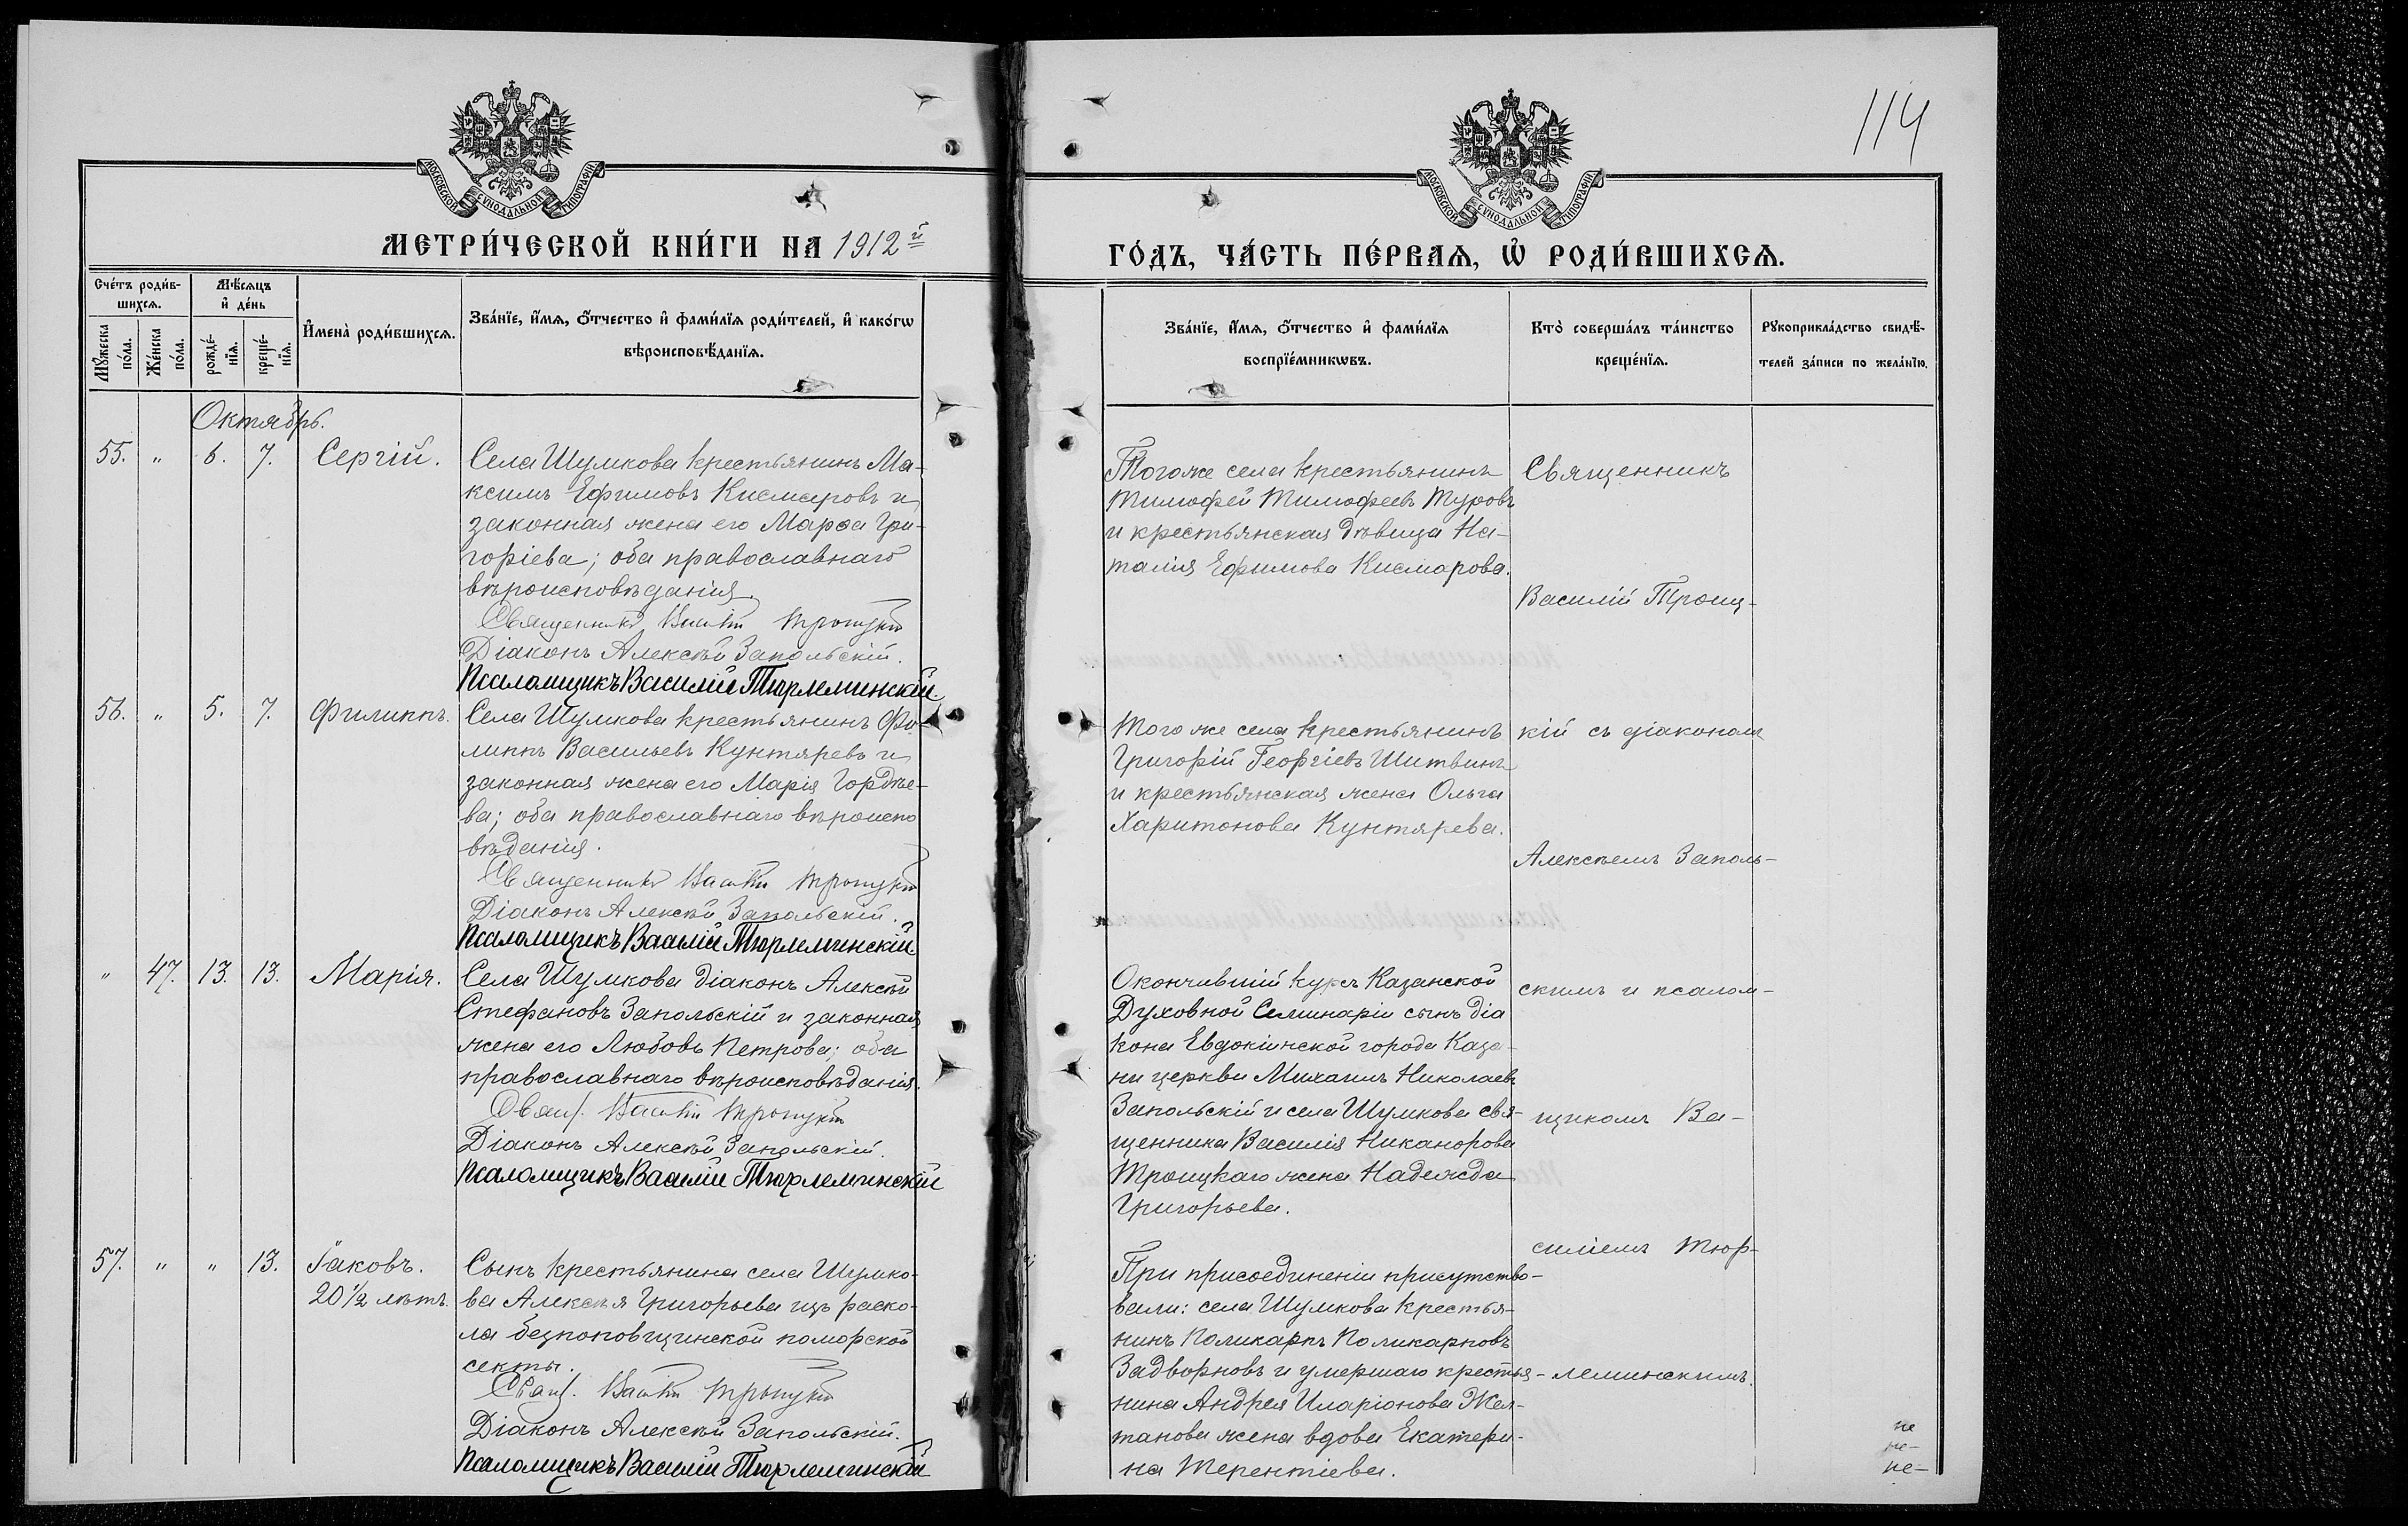 114
МОСКОВСКОЙ СѴНОДАЛЬНОЙ ТИПОГРАФІИ
МОСКОВСКОЙ СѴНОДАЛЬНОЙ ТИПОГРАФІИ
МЕТРИ́ЧЕСКОЙ КНИ́ГИ НА 1912й
ГО́ДЪ, ЧА́СТЬ ПЕ́РВАѦ, Ѡ҆ РОДИ́ВШИХСѦ.
Сче́тъ роди́в-
шихсѧ.
Мꙋ́жеска
по́ла.
Же́нска
по́ла.
Мѣ́сѧцъ
и҆ де́нь
рожде́-
нїѧ.
креще́-
нїѧ.
И҆мена̀ роди́вшихсѧ.
Зва́нїе, и҆́мѧ, ѻ҆́тчество и҆ фами́лїѧ роди́телей, и҆ како́гѡ
вѣроисповѣ́данїѧ.
Зва́нїе, и҆́мѧ, ѻ҆́тчество и҆ фами́лїѧ
воспрїе́мникѡвъ.
Кто̀ соверша́лъ та́инство
креще́нїѧ.
Рꙋкоприкла́дство свидѣ́-
телей за́писи по жела́нїю.
Октябрь.
55. " 6. 7. Сергій.
Села Шумкова крестьянинъ Ма-
ксимъ Ефимовъ Кисмаровъ и
законная жена его Марѳа Гри-
горіева; оба православнаго
вѣроисповѣданія.
Священникъ Василій Троицкій
Діаконъ Алексѣй Запольскій.
Псаломщикъ Василій Тюрлеминскій.
Тогоже села крестьянинъ
Тимофей Тимофеевъ Туровъ
и крестьянская дѣвица На-
талія Ефимова Кисмарова.
Священникъ
Василій Троиц-
56. " 5. 7. Филиппъ.
Села Шумкова крестьянинъ Фи-
липпъ Васильевъ Кунтяревъ и
законная жена его Марія Гордѣе-
ва; оба православнаго вѣроиспо
вѣданія.
Священникъ Василій Троицкій
Діаконъ Алексѣй Запольскій.
Псаломщикъ Василій Тюрлеминскій.
Того же села крестьянинъ
Григорій Георгіевъ Шитвинъ
и крестьянская жена Ольга
Харитонова Кунтярева.
кій съ діакономъ
Алексѣемъ Заполь-
" 47. 13. 13. Марія.
Села Шумкова діаконъ Алексѣй
Стефановъ Запольскій и законная
жена его Любовь Петрова; оба
православнаго вѣроисповѣданія.
Свящ. Василій Троицкій
Діаконъ Алексѣй Запольскій.
Псаломщикъ Василій Тюрлеминскій
Окончившій курсъ Казанской
Духовной Семинаріи сынъ діа
кона Евдокіинской города Каза-
ни церкви Михаилъ Николаевъ
Запольскій и села Шумкова свя-
щенника Василія Никанорова
Троицкаго жена Надежда
Григорьева.
скимъ и псалом-
щикомъ Ва-
57. " " 13. Іаковъ.
20 1/2 лѣтъ.
Сынъ крестьянина села Шумко-
ва Алексѣя Григорьева изъ раско-
ла безпоповщинской поморской
секты.
Свящ. Василій Троицкій
Діаконъ Алексѣй Запольскій.
Псаломщикъ Василій Тюрлеминскій
При присоединеніи присутство-
вали: села Шумкова крестья-
нинъ Поликарпъ Поликарповъ
Задворновъ и умершаго крестья-
нина Андрея Иларіонова Жел-
танова жена вдова Екатери-
на Терентіева.
силіемъ Тюр-
леминскимъ.
не
не-
не-